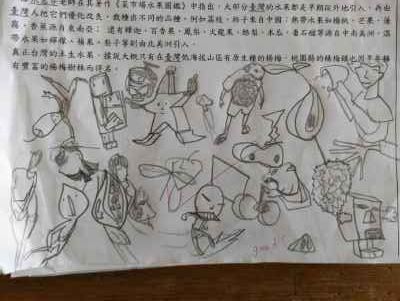 老師在其著作《菜市場水果圖鑑》中指出，大部分臺灣的水果都是早期從外地引入，再由
臺灣人把它們優化改良，栽種出不同的品種。例如荔枝、柿子來自中國，熱帶水果如楊桃、芒果、蓮
霧、香蕉源自東南亞；還有釋迦、百香果、鳳梨、火龍果、酪梨、木瓜、番石榴等源自中南美洲，溫
帶水果如檸檬、蘋果、梨子等則由北美洲引入。
真正台灣的本生水果，據說大概只有在臺灣低海拔山區有原生種的楊梅，桃園縣的楊梅鎮也因早年擁
有豐富的楊梅樹林而得名。
good!